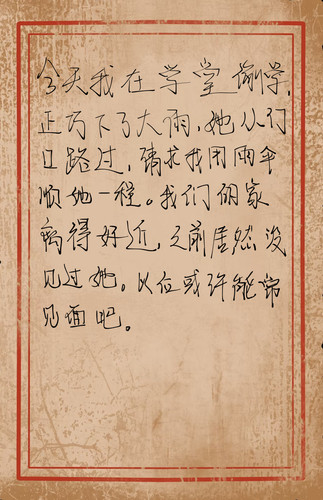 今天我在学堂偷学,
正巧下了大雨,她从门
口路过,请求我用雨伞
顺她一程。我们的家
离得好近,之前居然没
见过她。以后或许能常
见面吧。